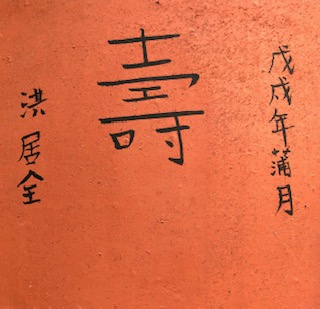 戊戌年蒲月
壽
洪居全